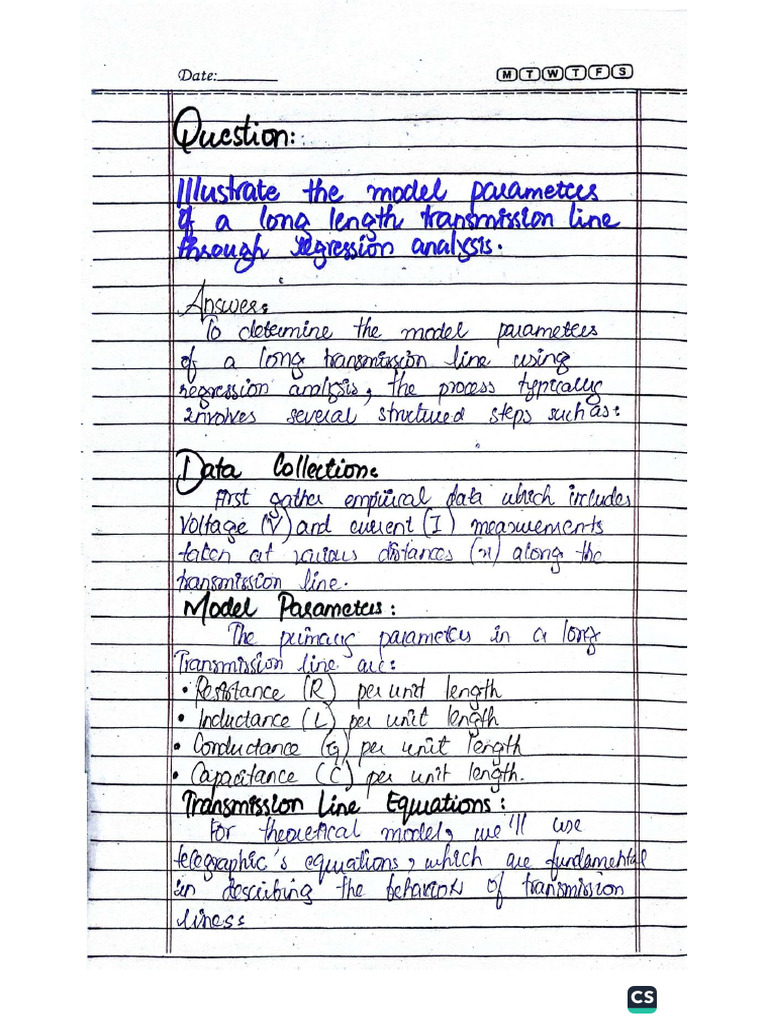 Date:
M T W T F S
Question:
Illustrate the model parameters
of a long length transmission line
through regression analysis.
Answer:
To determine the model parameters
of a long transmission line using
regression analysis, the process typically
involves several structured steps such as:
Data Collection:
First gather empirical data which includes
Voltage (V) and current (I) measurements
taken at various distances (x) along the
transmission line.
Model Parameters:
The primary parameters in a long
Transmission line are:
• Resistance (R) per unit length
• Inductance (L) per unit length
• Conductance (G) per unit length
• Capacitance (C) per unit length.
Transmission Line Equations:
For theoretical model, we'll use
telegraphic's equations, which are fundamental
in describing the behaviors of transmission
lines:
CS